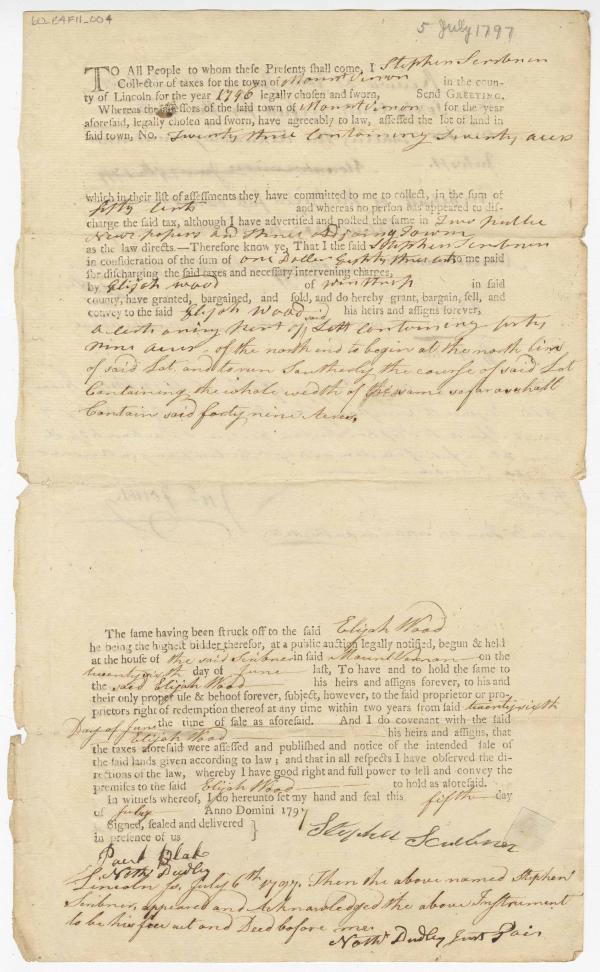 W2B4F11_004
5 July 1797
TO All People to whom these Presents shall come, I Stephen Scribner
Collector of taxes for the town of Mount Vernon in the coun-
ty of Lincoln for the year 1796 legally chosen and sworn, Send GREETING.
Whereas the assessors of the said town of Mount Vernon for the year
aforesaid, legally chosen and sworn, have agreeably to law, assessed the lot of land in
said town, No. Twenty three Containing Seventy acres
which in their list of assessments they have committed to me to collect, in the sum of
fifty Cents and whereas no person has appeared to dis-
charge the said tax, although I have advertised and posted the same in Two publie
News papers and three adjoing Towns
as the law directs.—Therefore know ye, That I the said Stephen Scribner
in consideration of the sum of one Doller Eighty three cents to me paid
for discharging the said taxes and necessary intervening charges,
by Elijah Wood of Winthrop in said
county, have granted, bargained, and sold, and do hereby grant, bargain, sell, and
convey to the said Elijah Wood his heirs and assigns forever,
a part of said Lott Containing forty
nine acres, of the north end to begin at the north line
of said Lot. and to run Southerly the course of said Lot
Containing the whole wedth of the same so far as shall
Contain said forty nine Acres.
The same having been struck off to the said Elijah Wood
he being the highest bidder therefor, at a public auction legally notified, begun & held
at the house of the said Scribner in said Mount Vernon on the
twenty sixth day of June last, To have and to hold the same to
the said Elijah Wood his heirs and assigns forever, to his and
their only proper use & behoof forever, subject, however, to the said proprietor or pro-
prietors right of redemption thereof at any time within two years from said twenty sixth
Day of June the time of sale as aforesaid. And I do covenant with the said
Elijah Wood his heirs and assigns, that
the taxes aforesaid were assessed and published and notice of the intended sale of
the said lands given according to law; and that in all respects I have observed the di-
rections of the law, whereby I have good right and full power to sell and convey the
premises to the said Elijah Wood to hold as aforesaid.
In witness whereof, I do hereunto set my hand and seal this fifth day
of July Anno Domini 1797
Signed, sealed and delivered }
in presence of us
Stephen Scribner
Nathl Dudley
Lincoln ss, July 6th 1797. Then the above named Stephen
Scribner, appeared and Acknowledged the above Instrument
to be his free act and Deed before me
Nathl Dudley Just Pais